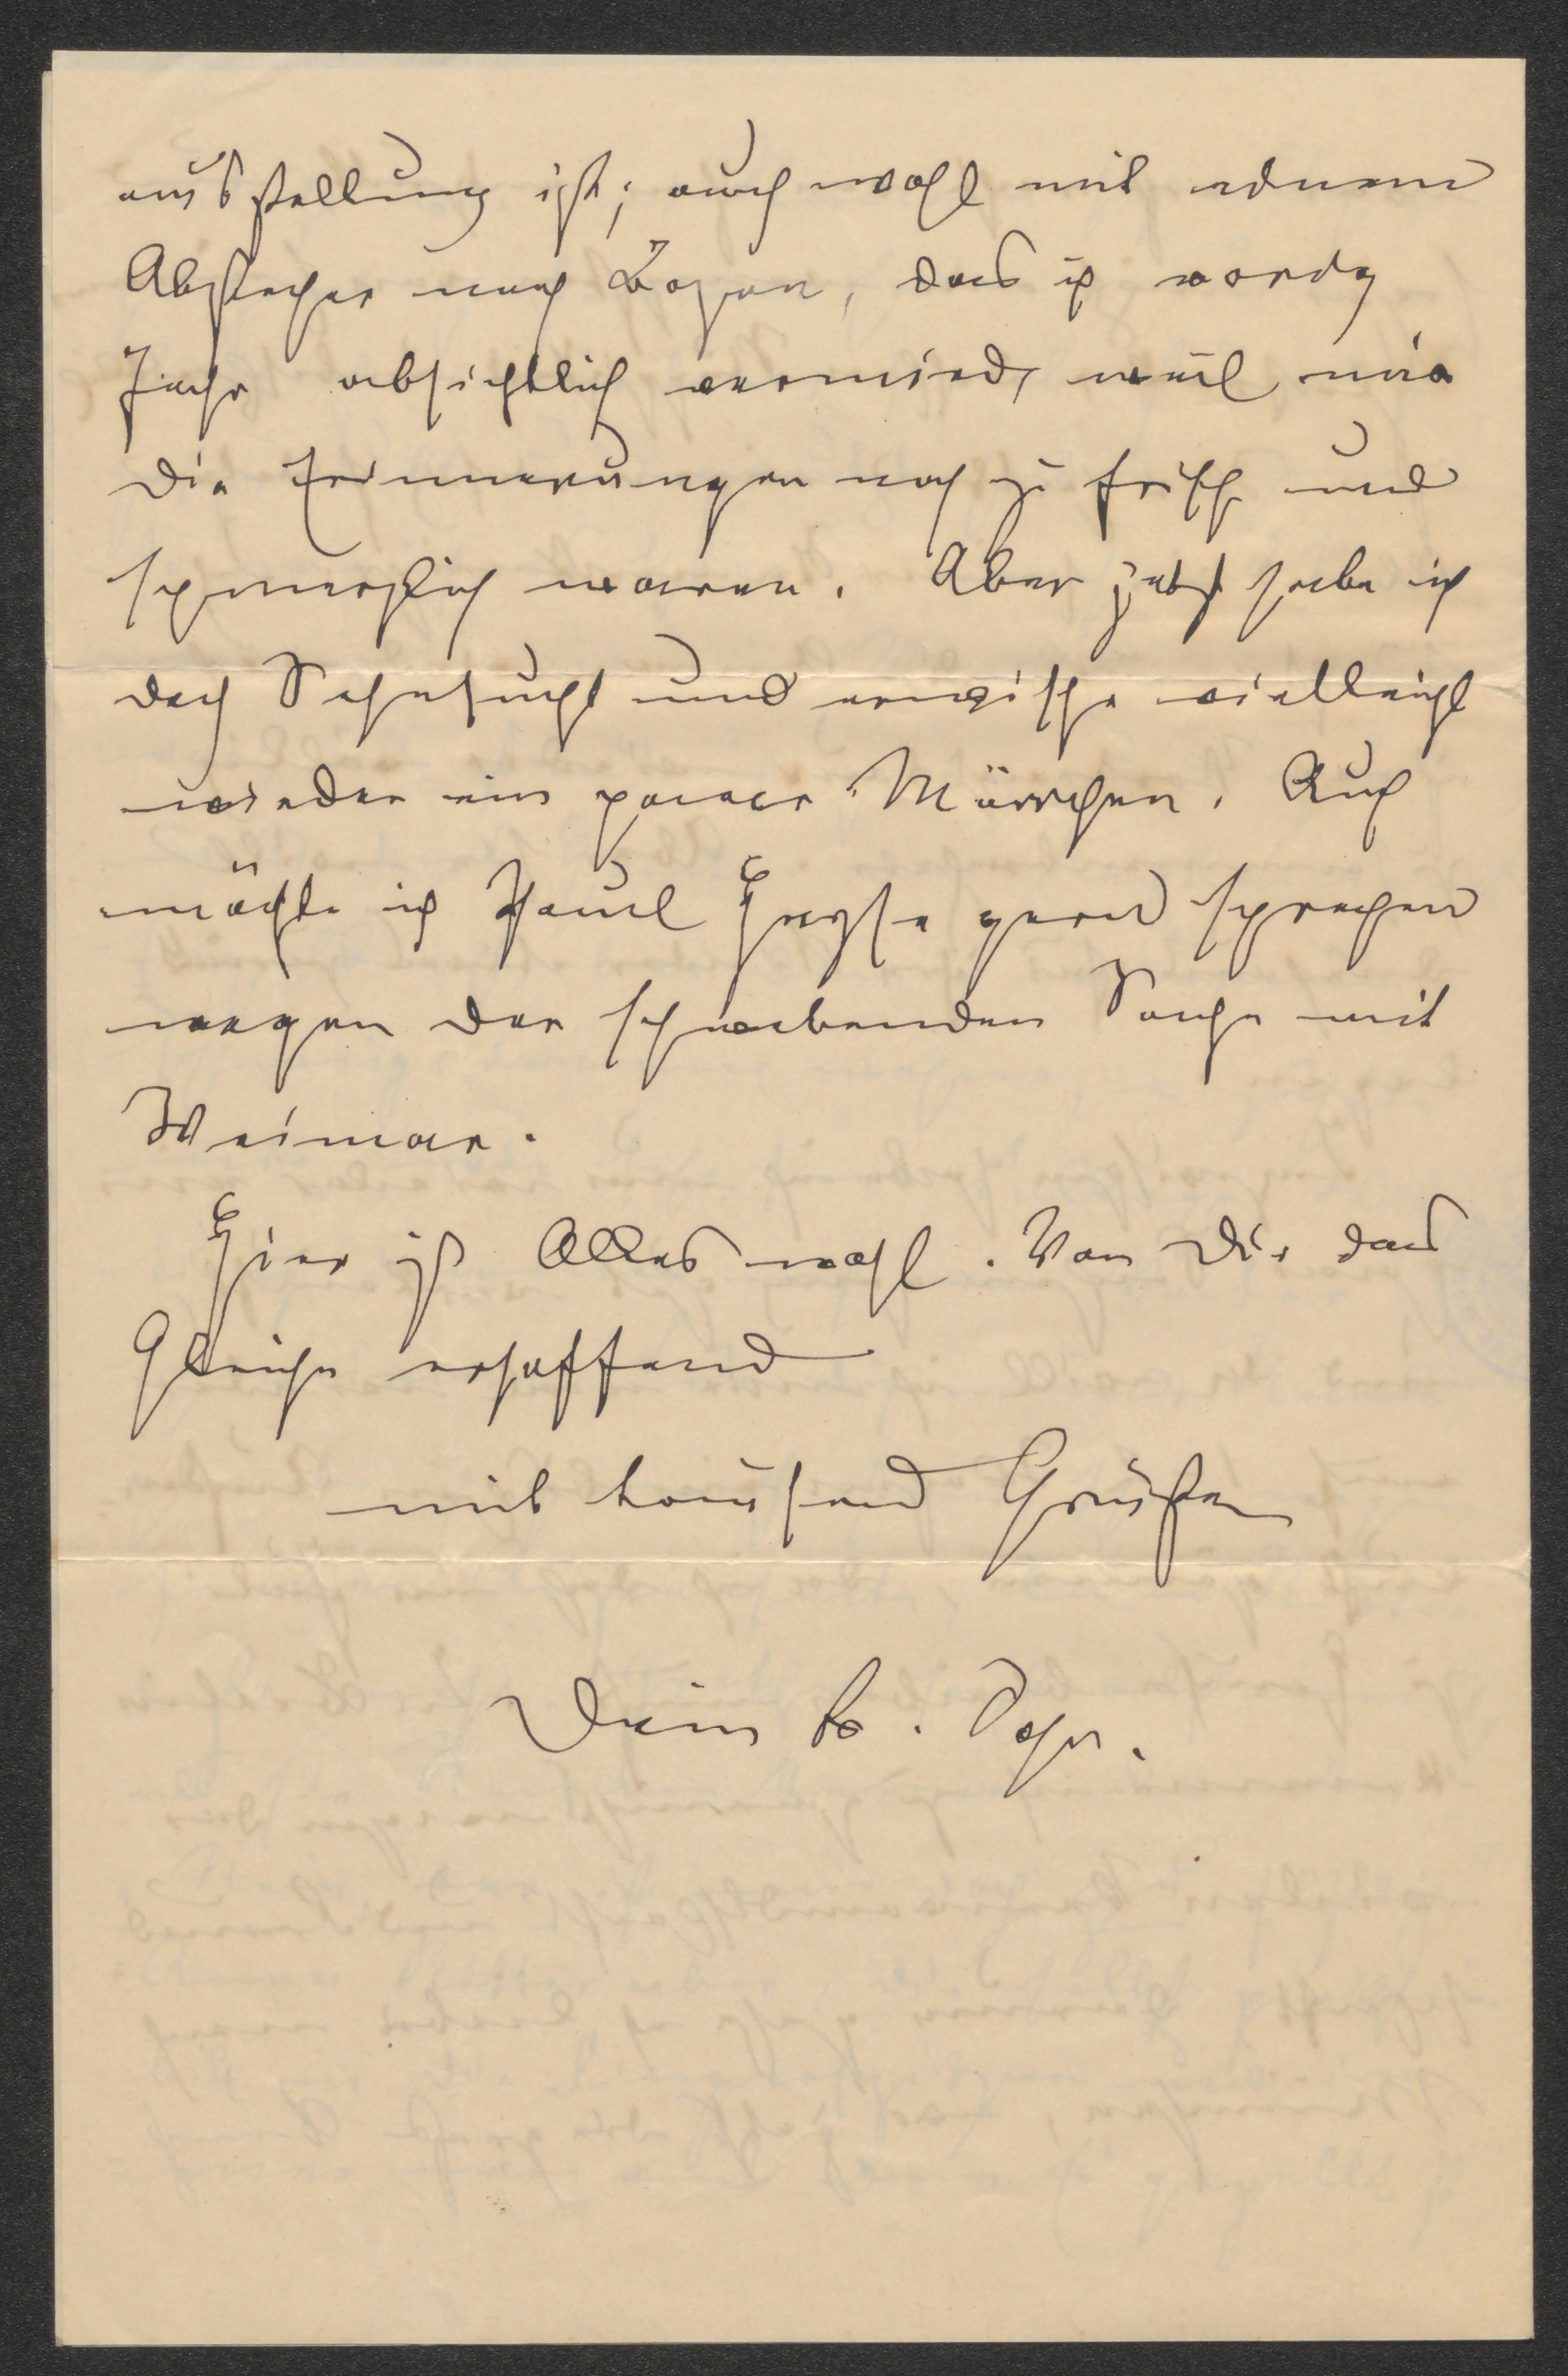 ausstellung ist; auch wohl mit einem
Abstecher nach Bozen, das ich vorig
Jahr absichtlich vermied, weil mir
die Erinnerungen noch zu frisch und
schmerzlich waren. Aber jetzt habe ich
doch Sehnsucht und erwische vielleicht
wieder ein paar Märchen. Auch
möchte ich Paul Heyse gern sprechen
wegen der schwebenden Sache mit
Weimar.
Hier ist Alles wohl. Von Dir das
Gleiche erhoffend
mit tausend Grüßen
Dein